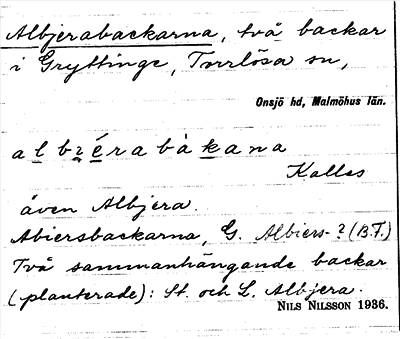 Albjerabackarna, två backar
i Gryttinge, Torrlösa sn,
Onsjö hd, Malmöhus län.
albzérabàkana
Kallas
även Albjera.
Abiersbackarna, G. Albiers-? (B.T.)
Två sammanhängande backar
(planterade): St. och L. Albjera.
NILS NILSSON 1936.